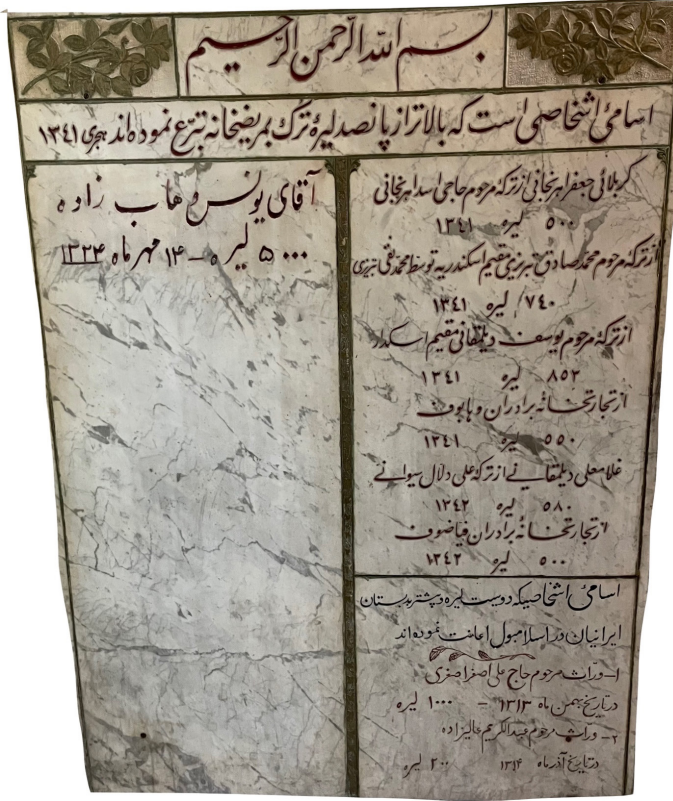 بسم الله الرحمن الرحیم
اسامئ اشخاصی است که بالاتر از پانصد لیرهٔ ترک بمریضخانه تبرّع نموده‌اند هجری ١٣٤١
کربلائی جعفر اهرنجانی از ترکهٔ مرحوم حاجی اسد اهرنجانی
٥٠٠ لیره ١٣٤١
از ترکهٔ مرحوم محمد صادق تبریزی مقیم اسکندریه توسط محمد تقی تبریزی
٧٤٠ لیره ١٣٤١
از ترکهٔ مرحوم یوسف دیلمقانی مقیم اسکدار
٨٥٢ لیره ١٣٤١
از تجارتخانهٔ برادران وهابوف
٥٥٠ لیره ١٣٤١
غلامعلی دیلمقانے از ترکهٔ علی دلال سیوانے
٥٨٠ لیره ١٣٤٢
از تجارتخانهٔ برادران فیاضوف
٥٠٠ لیره ١٣٤٢
اسامئ اشخاصیکه دویست لیره و بیشتر بدبستان
ایرانیان در اسلامبول اعانت نموده‌اند
١- وراث مرحوم حاج علی اصغر اصغری
در تاریخ بهمن ماه ١٣١٣ - ١٠٠٠ لیره
٢- وراث مرحوم عبدالکریم عالیزاده
در تاریخ آذر ماه ١٣١٤ ٢٠٠ لیره
آقای یونس وهاب زاده
۵۰۰۰ لیره - ۱۴ مهر ماه ۱۳۲۴